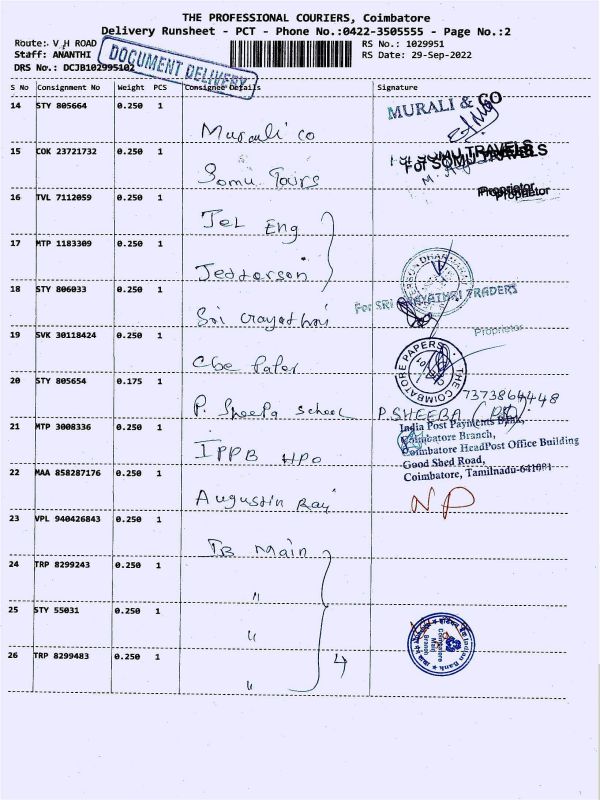 THE PROFESSIONAL COURIERS, Coimbatore
Delivery Runsheet - PCT - Phone No.:0422-3505555 - Page No.:2
Route: V H ROAD
Staff: ANANTHI
DRS No.: DCJB102995102
DOCUMENT DELIVERY
RS No.: 1029951
RS Date: 29-Sep-2022
S No Consignment No Weight PCS Consignee Details Signature
14 STY 805664 0.250 1
Murali co
MURALI & CO
15 COK 23721732 0.250 1
Somu
For SOMU TRAVELS
Proprietor
16 TVL 7112059 0.250 1
Tel Eng
17 MTP 1183309 0.250 1
Jefferson
18 STY 806033 0.250 1
Sri
For SRI GAYATHRI TRADERS
Proprietor
19 SVK 30118424 0.250 1
Cbe Paper
THE COIMBATORE PAPERS
20 STY 805654 0.175 1
P. Sheeba School
7373864448
P.SHEEBA
21 MTP 3008336 0.250 1
IPPB HPO
India Post Payments Bank,
Coimbatore Branch,
Coimbatore HeadPost Office Building
Good Shed Road,
Coimbatore, Tamilnadu-641001
22 MAA 858287176 0.250 1
Augustin Raj
NP
23 VPL 940426843 0.250 1
IB Main
24 TRP 8299243 0.250 1
"
25 STY 55031 0.250 1
"
26 TRP 8299483 0.250 1
"
4
Indian Bank
Coimbatore
Main
Branch